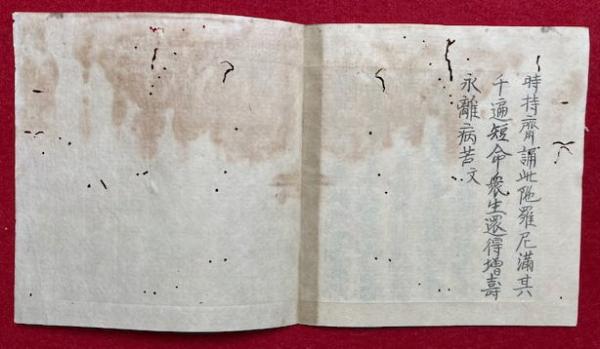 時持齋誦此陁羅尼滿其
千遍短命衆生還得増壽
永離病苦文